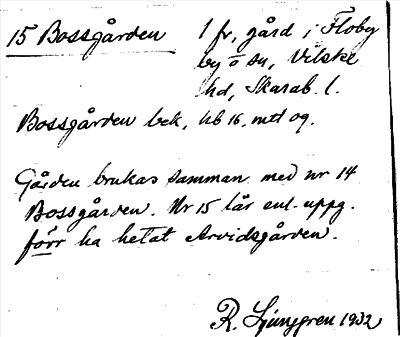 15 Bossgården 1 fr, gård i Floby
by o sn, Vilske
hd, Skarab. l.
Bossgården bek, ub 16, mtl og.
Gården brukas samman med nr 14
Bossgården. Nr 15 lär enl. uppg.
förr ha hetat Arvidsgården.
R. Ljunggren 1932